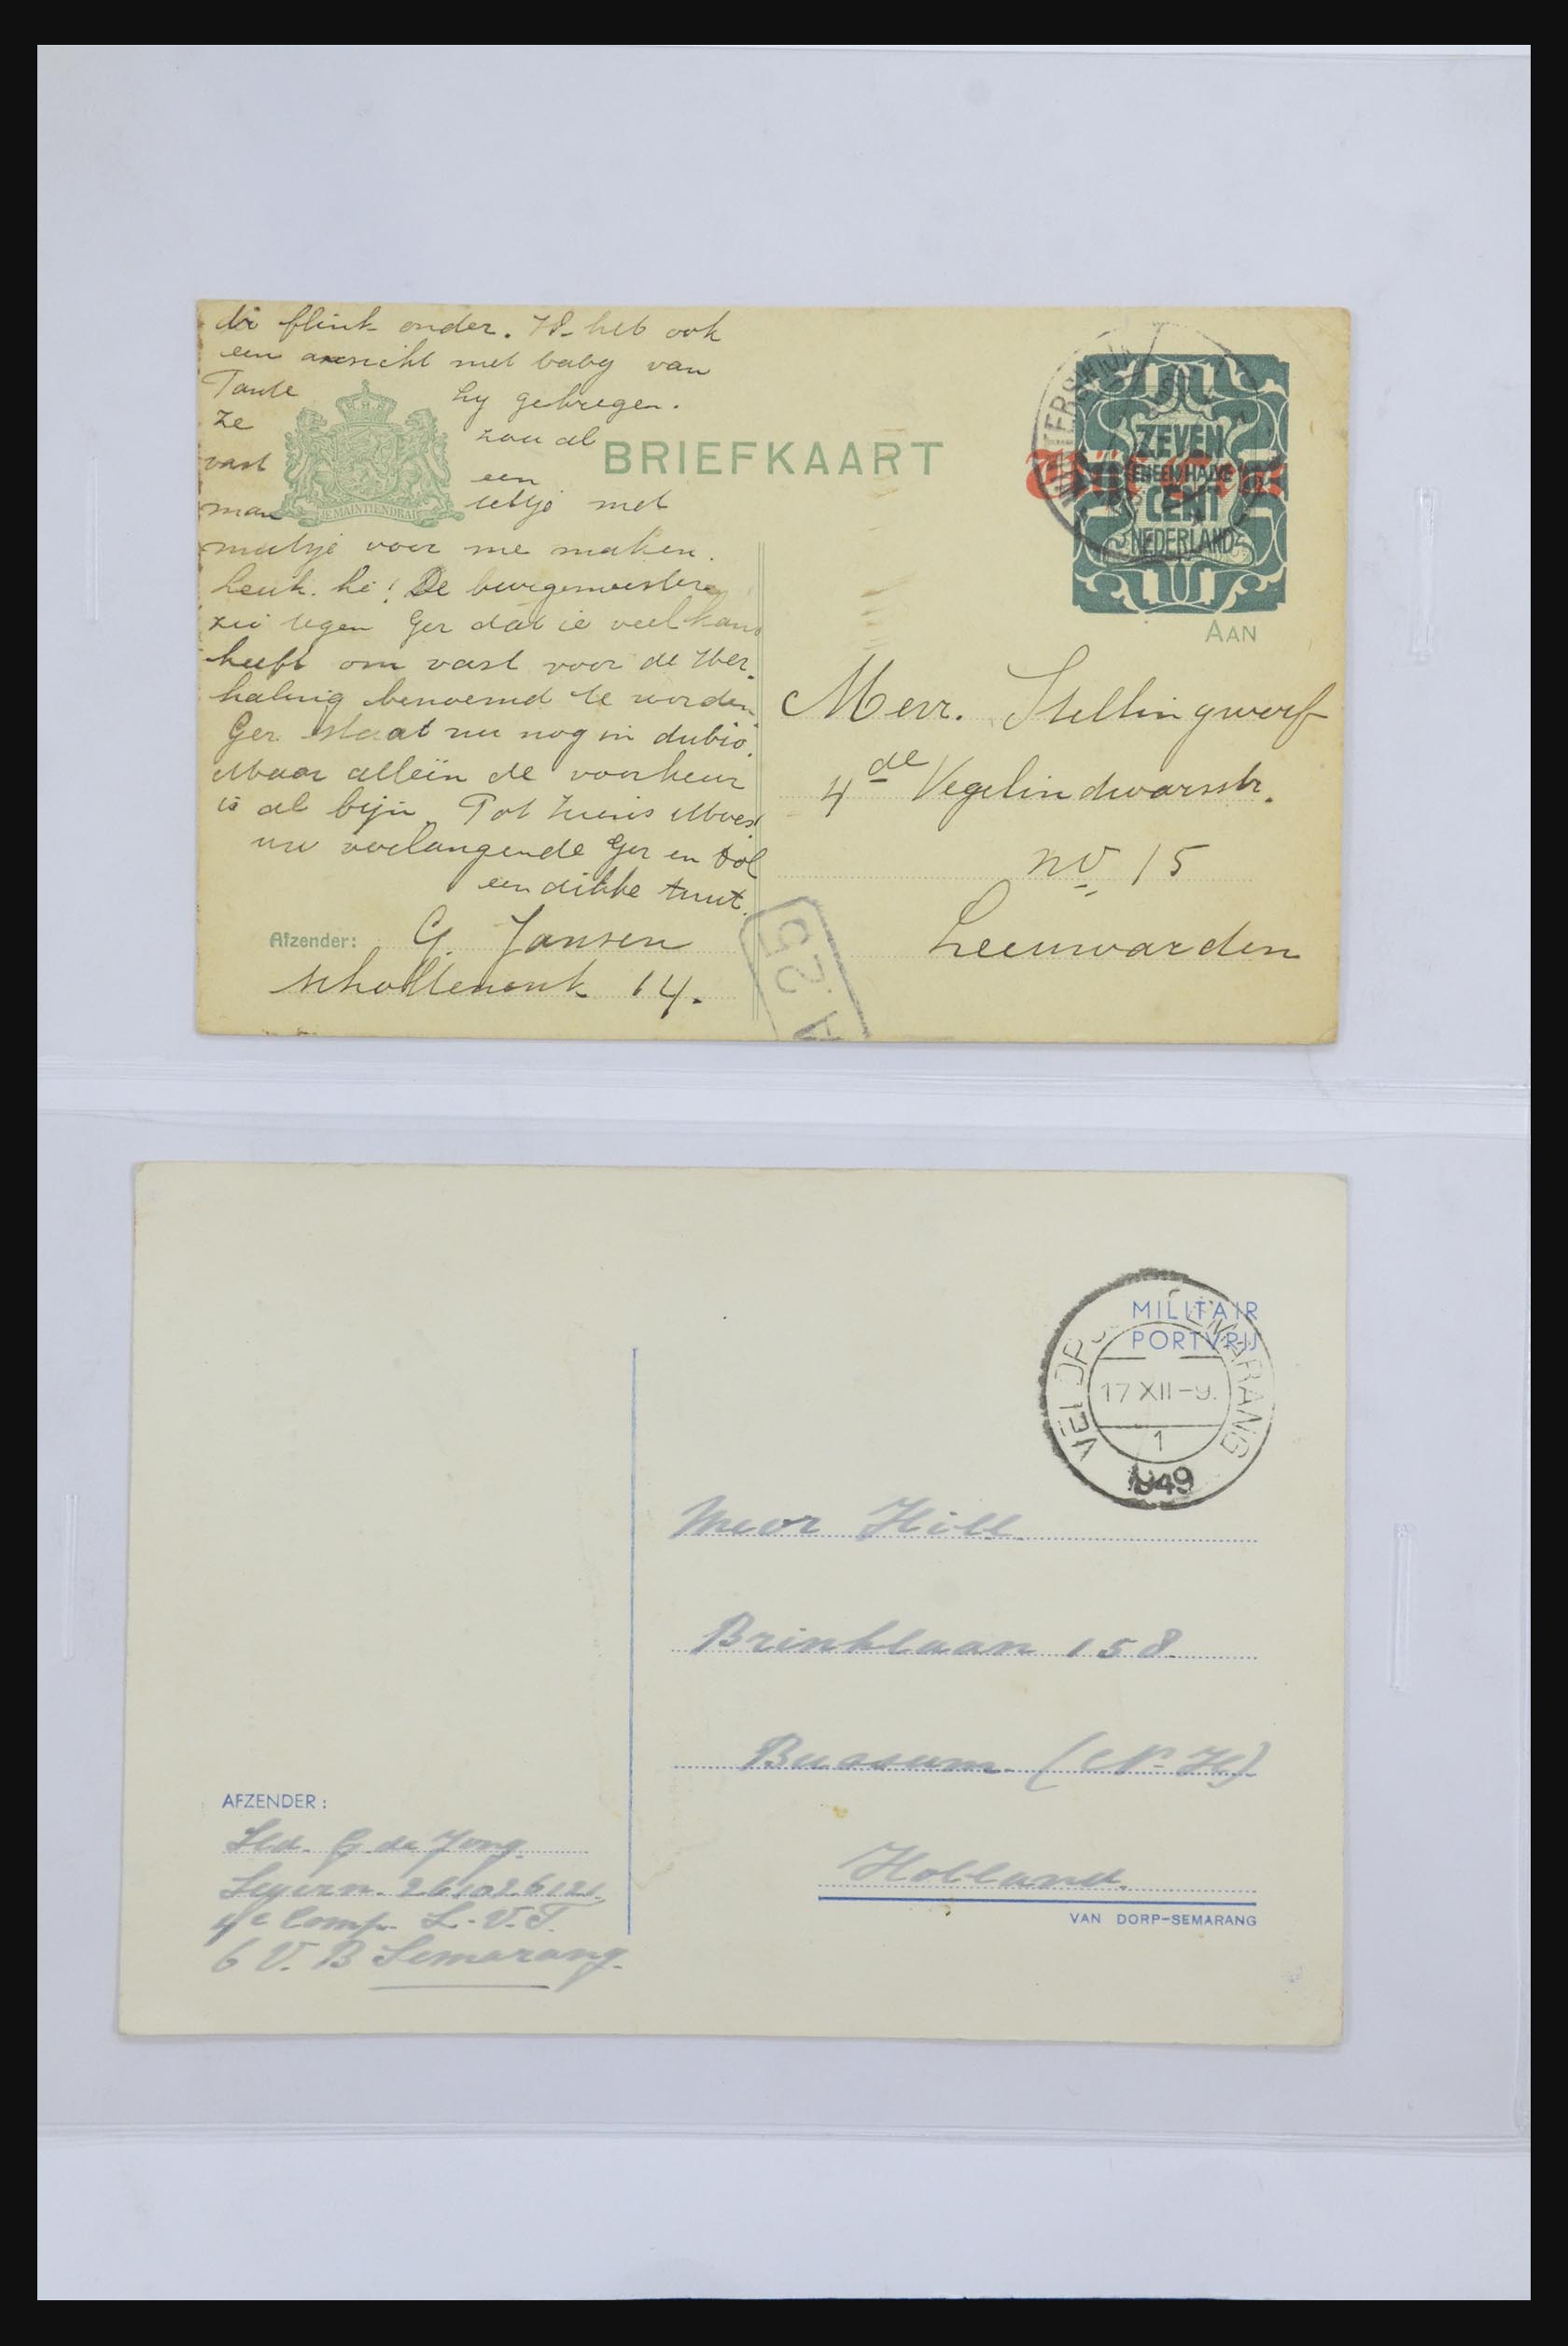 die flink onder. Ik heb ook
een aansicht met baby van
Tante Ly gekregen.
Ze zou al
vast een
man ultje met
mutsje voor me maken.
Leuk. hè! De burgemeester
zei tegen Ger dat ie veel kans
heeft om vast voor de
benoemd te worden.
Ger staat nu nog in dubio.
Maar alleen de voorkeur
is al fijn. Tot ziens Moes
uw verlangende Ger en Dol
een dikke tuut.
BRIEFKAART
JE MAINTIENDRAI
WINTERSWIJK
ZEVEN
EN EEN HALVE
CENT
NEDERLAND
AAN
Mevr. Stellingwerf
4de Vegelindwarsstr.
no 15
Leeuwarden
Afzender: G. Jansen
Scholtenenk 14.
MILITAIR
PORTVRIJ
VELDPOST SEMARANG
17 XII-9.
1
1949
Mevr Hill
Brinklaan 158.
Bussum. (N-H).
Holland.
VAN DORP-SEMARANG
AFZENDER:
Sld. G. de Jong.
Legern. 261026121.
4e Comp. L.V.T.
6 V.B Semarang.